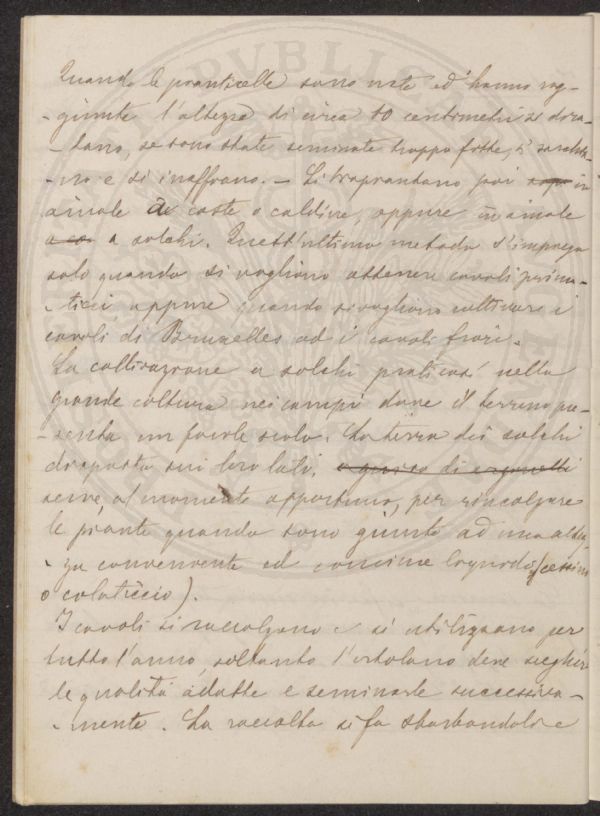 Quando le pianticelle sono nate ed hanno rag-
-giunte l'altezza di circa 10 centimetri si dira-
-dano, se sono state seminate troppo fitte, si sarchia-
-no e si inaffiano. – Si trapiantano poi in
aiuole a coste o caldine, oppure in aiuole
a solchi. Quest'ultimo metodo s'impiega
solo quando si vogliono ottenere cavoli prima-
-ticci oppure quando si vogliono coltivare i
cavoli di Bruxelles ed i cavoli fiori.
La coltivazione a solchi praticasi nella
grande coltura nei campi dove il terreno pre-
-senta un facile scolo. La terra dei solchi
disposta sui loro lati, o guisa di
serve al momento opportuno, per rincalzare
le piante quando sono giunte ad una altez-
-za conveniente ed concime liquido (cessino
o colaticcio).
I cavoli si raccolgono e si utilizzano per
tutto l'anno, soltanto l'ortolano deve scegliere
le qualità adatte e seminarle successiva-
-mente. La raccolta si fa sbarbandoli e